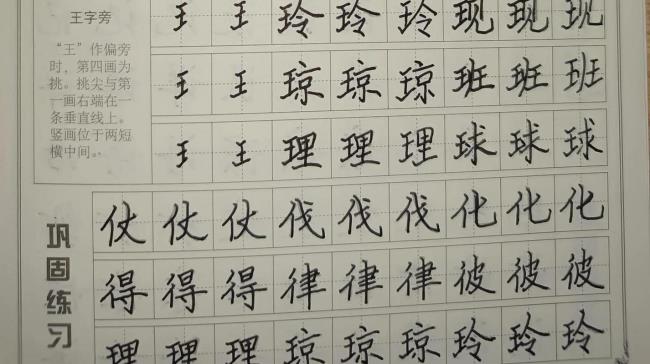 王字旁
“王”作偏旁
时，第四画为
挑。挑尖与第
一画右端在一
条垂直线上。
竖画位于两短
横中间。
王 王 玲 玲 玲 现 现 现
王 王 琼 琼 琼 班 班 班
王 王 理 理 理 球 球 球
巩固练习
仗 仗 仗 伐 伐 伐 化 化 化
得 得 得 律 律 律 彼 彼 彼
理 理 理 琼 琼 琼 玲 玲 玲